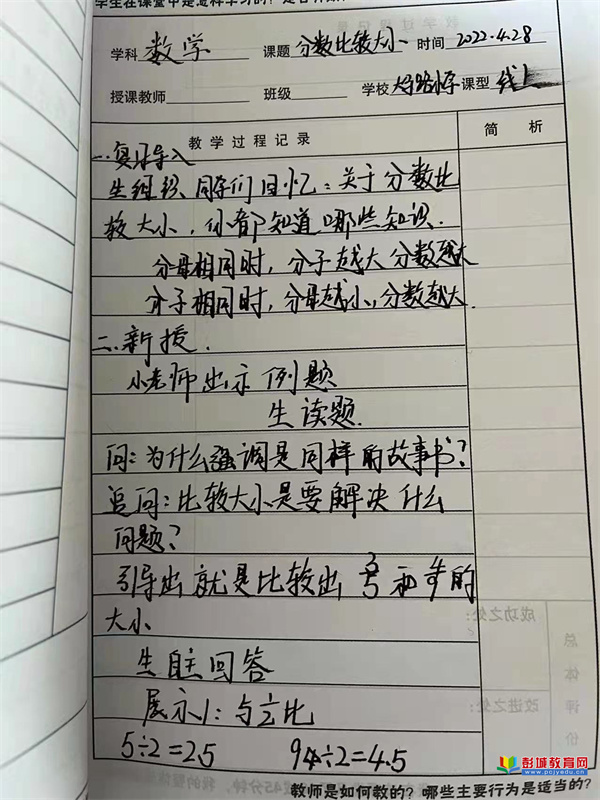 学生在课堂中是怎样学习的？是否有效
学科 数学 课题 分数比较大小 时间 2022.4.28
授课教师 班级 学校 路小学 课型 线上
教学过程记录 简析
一.复习导入
生组织同学们回忆：关于分数比
较大小，你都知道哪些知识.
分母相同时，分子越大分数越大
分子相同时，分母越小，分数越大.
二.新授.
小老师出示例题
生读题.
问：为什么强调是同样的故事书？
追问：比较大小是要解决什么
问题？
引导出就是比较出 和 的
大小
生自主回答
展示1：与½比
5÷2=2.5 9÷2=4.5
成功之处：
总体评价
改进之处：
彭城教育网
www.pcjyedu.cn
教师是如何教的？哪些主要行为是适当的？